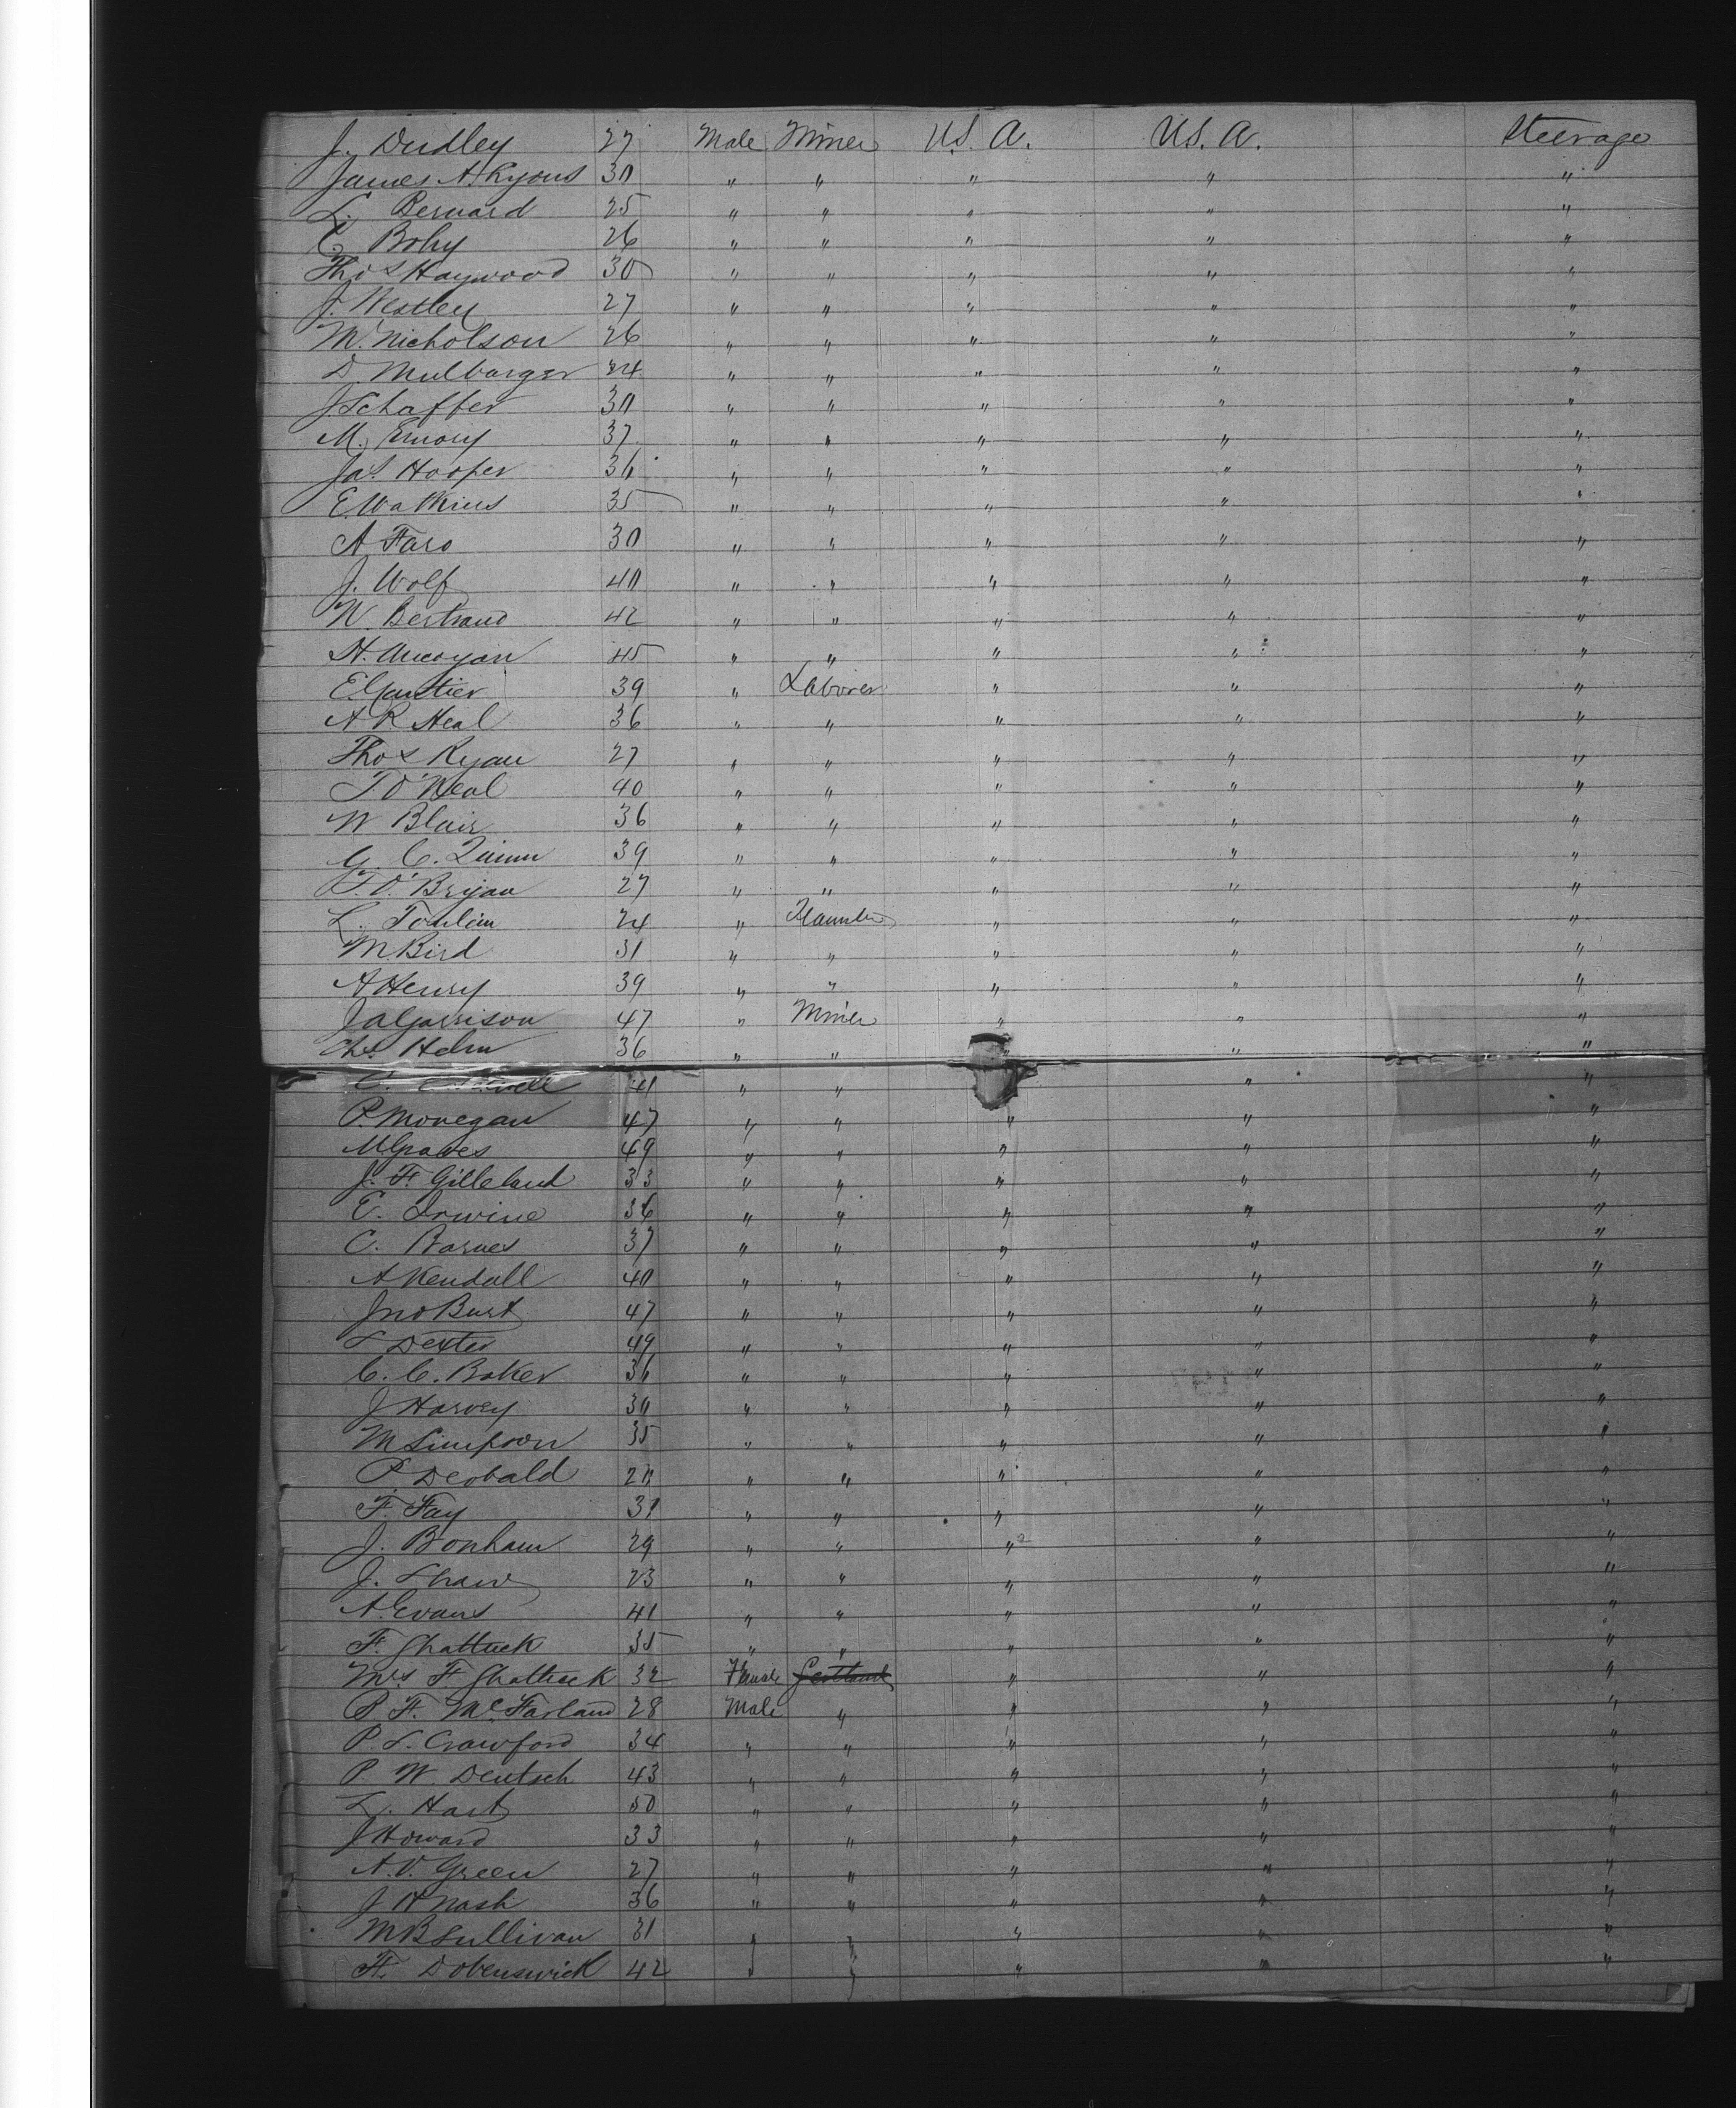 J. Dudley 27 Male Miner U.S. A. U.S. A. Steerage
James A. Ryons 30 " " " " "
L. Bernard 25 " " " " "
C. Bohy 26 " " " " "
Thos Haywood 30 " " " " "
J. Nestley 27 " " " " "
M. Nicholson 26 " " " " "
D. Mulbarger 24 " " " " "
J Schaffer 30 " " " " "
M. Emory 37 " " " " "
Jas. Hooper 36 " " " " "
E. Watkins 35 " " " " "
A Faro 30 " " " " "
J. Wolf 40 " " " " "
W. Bertrand 42 " " " " "
H. 45 " " " " "
E. Gautier 39 " Laborer " " "
A R Heal 36 " " " " "
Thos Ryan 27 " " " " "
T O'Neal 40 " " " " "
W Blair 36 " " " " "
G. C. Quinn 39 " " " " "
T. O'Bryan 27 " " " " "
L. Tomlin 24 " " " "
M. Bird 31 " " " " "
A Henry 39 " " " " "
J A Garrison 47 " Miner " " "
Chs. Helm 36 " " " " "
C. 41 " " " "
P. Monegan 47 " " " " "
M Graves 49 " " " " "
J. F. Gilleland 33 " " " " "
E. Irwine 36 " " " " "
C. Barnes 37 " " " " "
A Kendall 40 " " " " "
Jno Burt 47 " " " " "
L Dexter 49 " " " " "
C. C. Baker 36 " " " " "
J Harvey 30 " " " " "
M Simpson 35 " " " " "
P. Deobald 20 " " " " "
F. Fay 31 " " " " "
J. Bonham 29 " " " " "
J. Shaw 23 " " " " "
A. Evans 41 " " " " "
F. Shattuck 35 " " " " "
Mrs F Shattuck 32 Female " " "
P. F. McFarland 28 Male " " " "
P. L. Crawford 34 " " " " "
P. W. Deutsch 43 " " " " "
L. Hart 50 " " " " "
J Howard 33 " " " " "
A. V. Green 27 " " " " "
J W Nash 36 " " " " "
M B Sullivan 31 " " " " "
H. Dobenswick 42 " " " " "